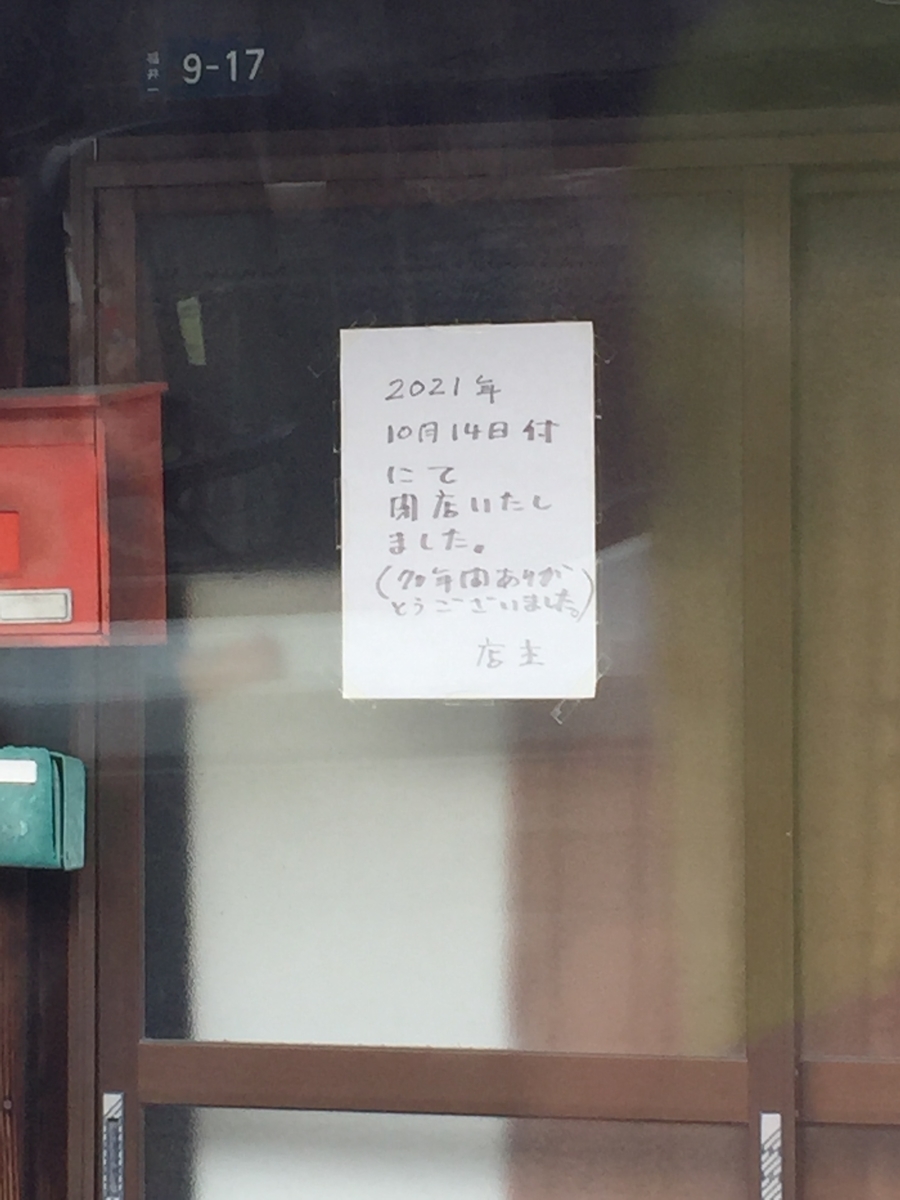 福井一
9-17
2021年
10月14日付
にて
閉店いたし
ました。
(70年間ありが
とうございました。)
店主